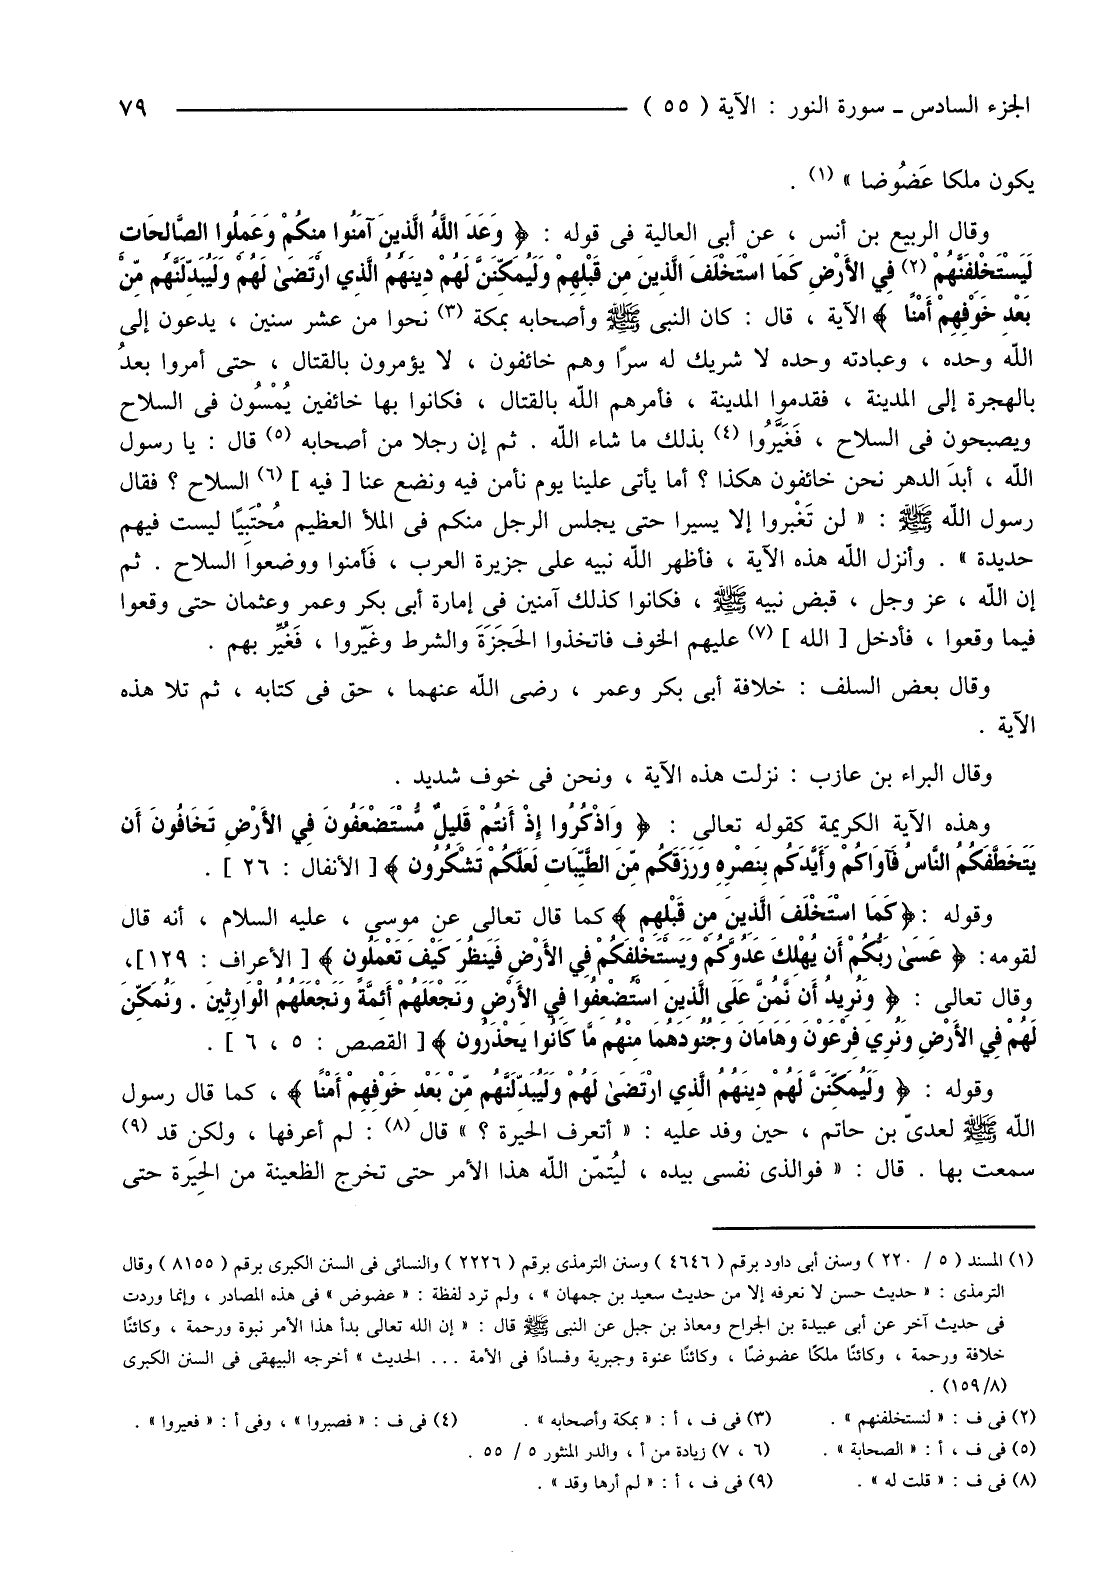 الجزء السادس ـ سورة النور : الآية ( ٥٥ ) ٧٩
يكون ملكا عَضُوضا » (١) .
وقال الربيع بن أنس ، عن أبى العالية فى قوله : ﴿ وَعَدَ اللَّهُ الَّذِينَ آمَنُوا مِنكُمْ وَعَمِلُوا الصَّالِحَات
لَيَسْتَخْلِفَنَّهُمْ (٢) فِي الأَرْضِ كَمَا اسْتَخْلَفَ الَّذِينَ مِن قَبْلِهِمْ وَلَيُمَكِّنَنَّ لَهُمْ دِينَهُمُ الَّذِي ارْتَضَىٰ لَهُمْ وَلَيُبَدِّلَنَّهُم مِّنْ
بَعْدِ خَوْفِهِمْ أَمْنًا ﴾ الآية ، قال : كان النبى ﷺ وأصحابه بمكة (٣) نحوا من عشر سنين ، يدعون إلى
الله وحده ، وعبادته وحده لا شريك له سرًا وهم خائفون ، لا يؤمرون بالقتال ، حتى أمروا بعدُ
بالهجرة إلى المدينة ، فقدموا المدينة ، فأمرهم الله بالقتال ، فكانوا بها خائفين يُمْسُون فى السلاح
ويصبحون فى السلاح ، فَغَيَّرُوا (٤) بذلك ما شاء الله . ثم إن رجلا من أصحابه (٥) قال : يا رسول
الله ، أبدَ الدهر نحن خائفون هكذا ؟ أما يأتى علينا يوم نأمن فيه ونضع عنا [ فيه ] (٦) السلاح ؟ فقال
رسول الله ﷺ : « لن تَغْبروا إلا يسيرا حتى يجلس الرجل منكم فى الملأ العظيم مُحْتَبِيًا ليست فيهم
حديدة » . وأنزل الله هذه الآية ، فأظهر الله نبيه على جزيرة العرب ، فَأمنوا ووضعوا السلاح . ثم
إن الله ، عز وجل ، قبض نبيه ﷺ ، فكانوا كذلك آمنين فى إمارة أبى بكر وعمر وعثمان حتى وقعوا
فيما وقعوا ، فأدخل [ الله ] (٧) عليهم الخوف فاتخذوا الحَجَزَةَ والشرط وغَيّروا ، فَغُيِّر بهم .
وقال بعض السلف : خلافة أبى بكر وعمر ، رضى الله عنهما ، حق فى كتابه ، ثم تلا هذه
الآية .
وقال البراء بن عازب : نزلت هذه الآية ، ونحن فى خوف شديد .
وهذه الآية الكريمة كقوله تعالى : ﴿ وَاذْكُرُوا إِذْ أَنتُمْ قَلِيلٌ مُّسْتَضْعَفُونَ فِي الأَرْضِ تَخَافُونَ أَن
يَتَخَطَّفَكُمُ النَّاسُ فَآوَاكُمْ وَأَيَّدَكُم بِنَصْرِهِ وَرَزَقَكُم مِّنَ الطَّيِّبَاتِ لَعَلَّكُمْ تَشْكُرُون ﴾ [ الأنفال : ٢٦ ] .
وقوله : ﴿ كَمَا اسْتَخْلَفَ الَّذِينَ مِن قَبْلِهِم ﴾ كما قال تعالى عن موسى ، عليه السلام ، أنه قال
لقومه: ﴿ عَسَىٰ رَبُّكُمْ أَن يُهْلِكَ عَدُوَّكُمْ وَيَسْتَخْلِفَكُمْ فِي الأَرْضِ فَيَنظُرَ كَيْفَ تَعْمَلُون ﴾ [ الأعراف : ١٢٩]،
وقال تعالى : ﴿ وَنُرِيدُ أَن نَّمُنَّ عَلَى الَّذِينَ اسْتُضْعِفُوا فِي الأَرْضِ وَنَجْعَلَهُمْ أَئِمَّةً وَنَجْعَلَهُمُ الْوَارِثِينَ . وَنُمَكِّنَ
لَهُمْ فِي الأَرْضِ وَنُرِي فِرْعَوْنَ وَهَامَانَ وَجُنُودَهُمَا مِنْهُم مَّا كَانُوا يَحْذَرُون ﴾ [ القصص : ٥ ، ٦ ] .
وقوله : ﴿ وَلَيُمَكِّنَنَّ لَهُمْ دِينَهُمُ الَّذِي ارْتَضَىٰ لَهُمْ وَلَيُبَدِّلَنَّهُم مِّنْ بَعْدِ خَوْفِهِمْ أَمْنًا ﴾ ، كما قال رسول
الله ﷺ لعدىّ بن حاتم ، حين وفد عليه : « أتعرف الحيرة ؟ » قال (٨) : لم أعرفها ، ولكن قد (٩)
سمعت بها . قال : « فوالذى نفسى بيده ، ليُتمّن الله هذا الأمر حتى تخرج الظعينة من الحِيَرة حتى
(١) المسند ( ٥ / ٢٢٠ ) وسنن أبى داود برقم ( ٤٦٤٦ ) وسنن الترمذى برقم ( ٢٢٢٦ ) والنسائى فى السنن الكبرى برقم ( ٨١٥٥ ) وقال
الترمذى : « حديث حسن لا نعرفه إلا من حديث سعيد بن جمهان » ، ولم ترد لفظة : « عضوض » فى هذه المصادر ، وإنما وردت
فى حديث آخر عن أبى عبيدة بن الجراح ومعاذ بن جبل عن النبى ﷺ قال : « إن الله تعالى بدأ هذا الأمر نبوة ورحمة ، وكائنًا
خلافة ورحمة ، وكائنًا ملكًا عضوضًا ، وكائنًا عنوة وجبرية وفسادًا فى الأمة ... الحديث » أخرجه البيهقى فى السنن الكبرى
(١٥٩/٨) .
(٢) فى ف : « لنستخلفنهم » . (٣) فى ف ، أ : « بمكة وأصحابه » . (٤) فى ف : « فصبروا » ، وفى أ : « فعيروا » .
(٥) فى ف ، أ : « الصحابة » . (٦ ، ٧) زيادة من أ ، والدر المنثور ٥ / ٥٥ .
(٨) فى ف : « قلت له » . (٩) فى ف ، أ : « لم أرها وقد » .